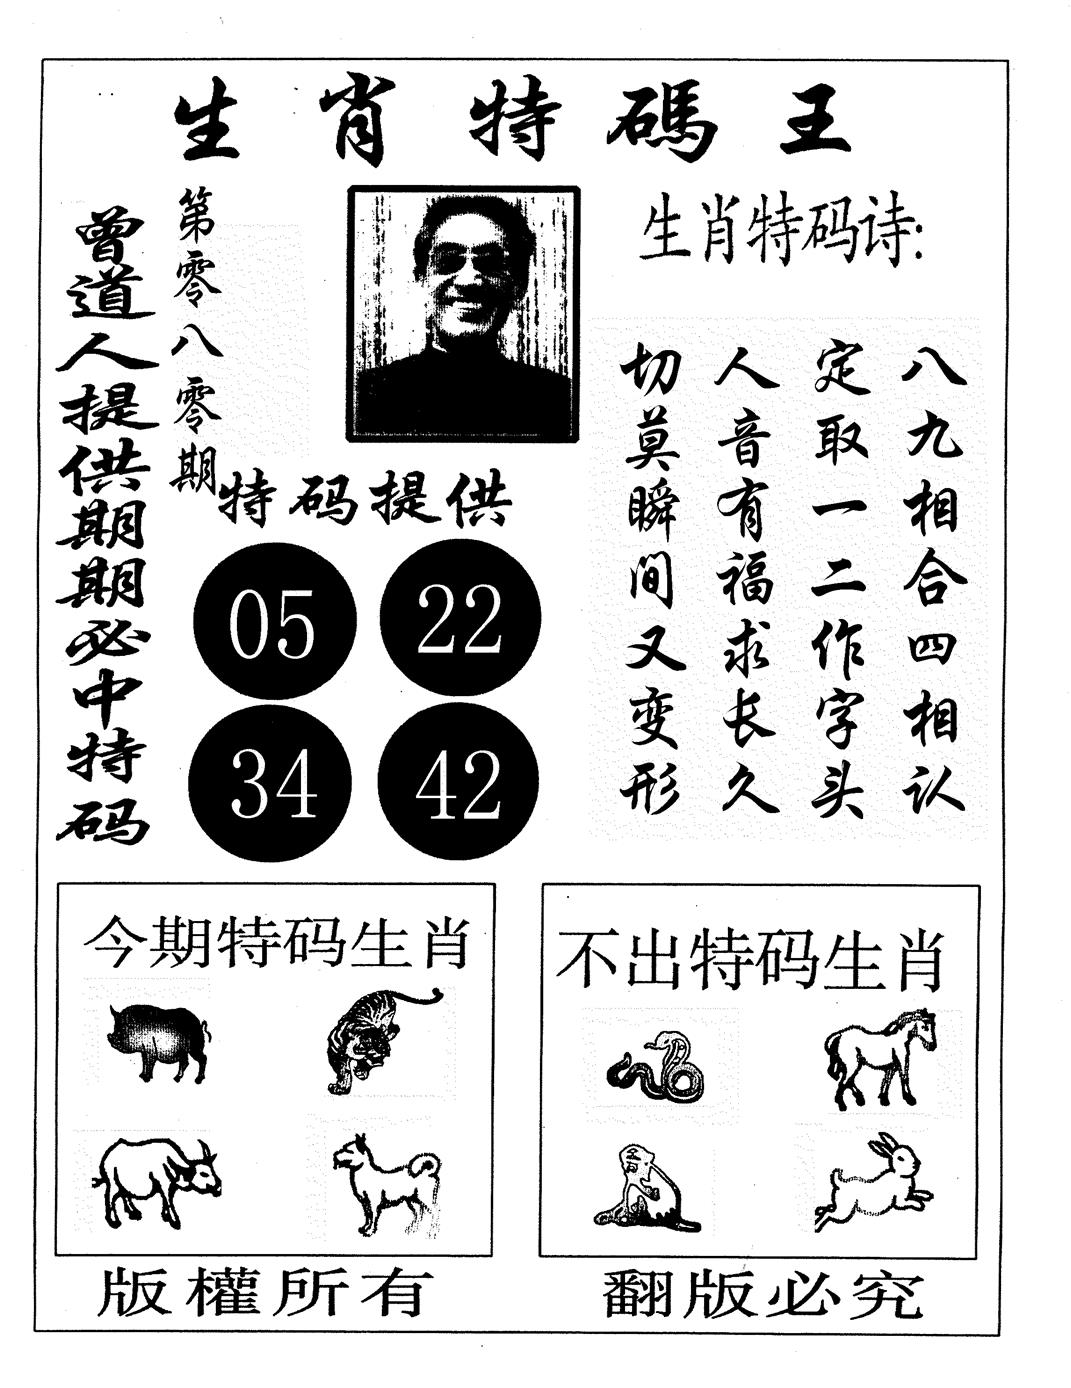 生肖特碼王
曾道人提供期期必中特码
第零八零期
生肖特码诗:
八九相合四相认
定取一二作字头
人音有福求长久
切莫瞬间又变形
特码提供
05 22
34 42
今期特码生肖
不出特码生肖
版權所有
翻版必究